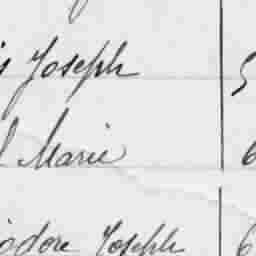 s Joseph 5
l Marie 6
odore Joseph 6